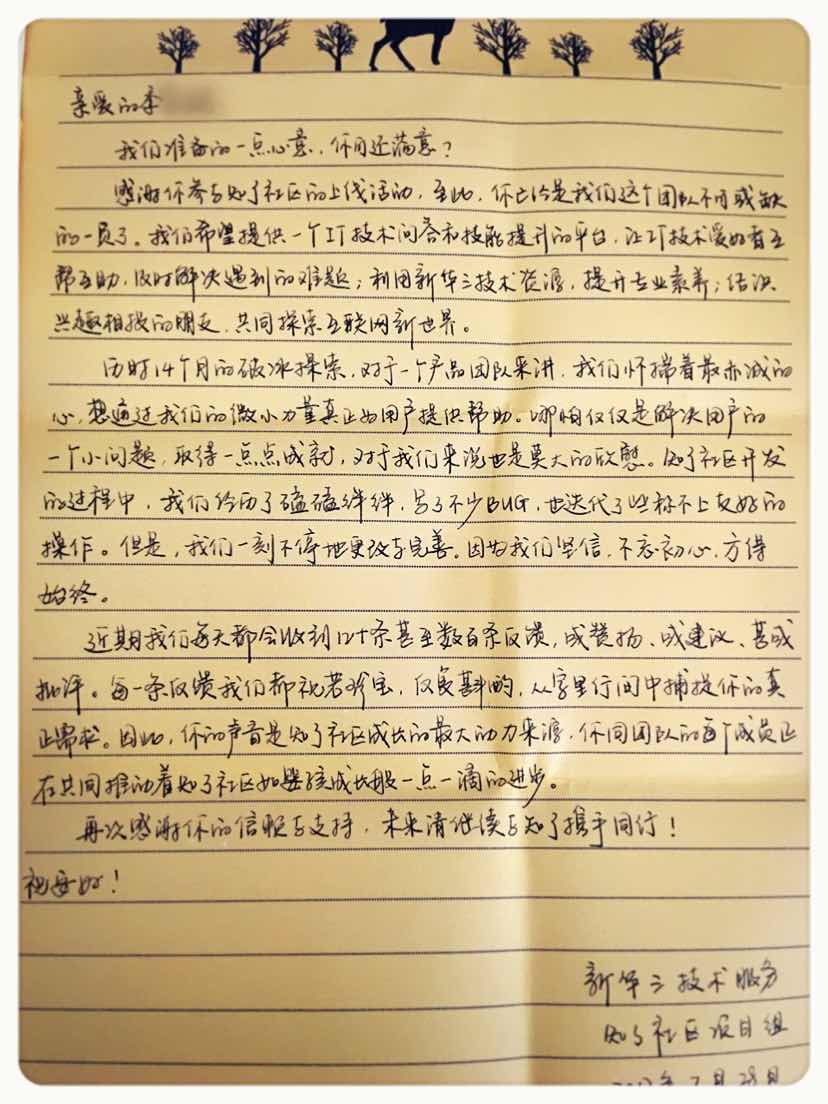 亲爱的李
我们准备的一点心意，你可还满意？
感谢你参与知了社区的上线活动，至此，你已经是我们这个团队不可或缺
的一员了。我们希望提供一个IT技术问答和技能提升的平台，让IT技术爱好者互
帮互助，及时解决遇到的难题；利用新华三技术资源，提升专业素养；结识
兴趣相投的朋友，共同探索互联网新世界。
历时14个月的破冰探索，对于一个产品团队来讲，我们怀揣着最赤诚的
心，想通过我们的微小力量真正为用户提供帮助。哪怕仅仅是解决用户的
一个小问题，取得一点点成就，对于我们来说也是莫大的欣慰。知了社区开发
的过程中，我们经历了磕磕绊绊，写了不少BUG，也迭代了些称不上友好的
操作。但是，我们一刻不停地更改与完善。因为我们坚信，不忘初心，方得
始终。
近期我们每天都会收到几十条甚至数百条反馈，或赞扬、或建议、甚或
批评。每一条反馈我们都视若珍宝，反复斟酌，从字里行间中捕捉你的真
正需求。因此，你的声音是知了社区成长的最大动力来源，你同团队的每个成员正
在共同推动着知了社区如婴孩成长般一点一滴的进步。
再次感谢你的信赖与支持，未来请继续与知了携手同行！
祝安好！
新华三技术服务
知了社区项目组
年7月28日